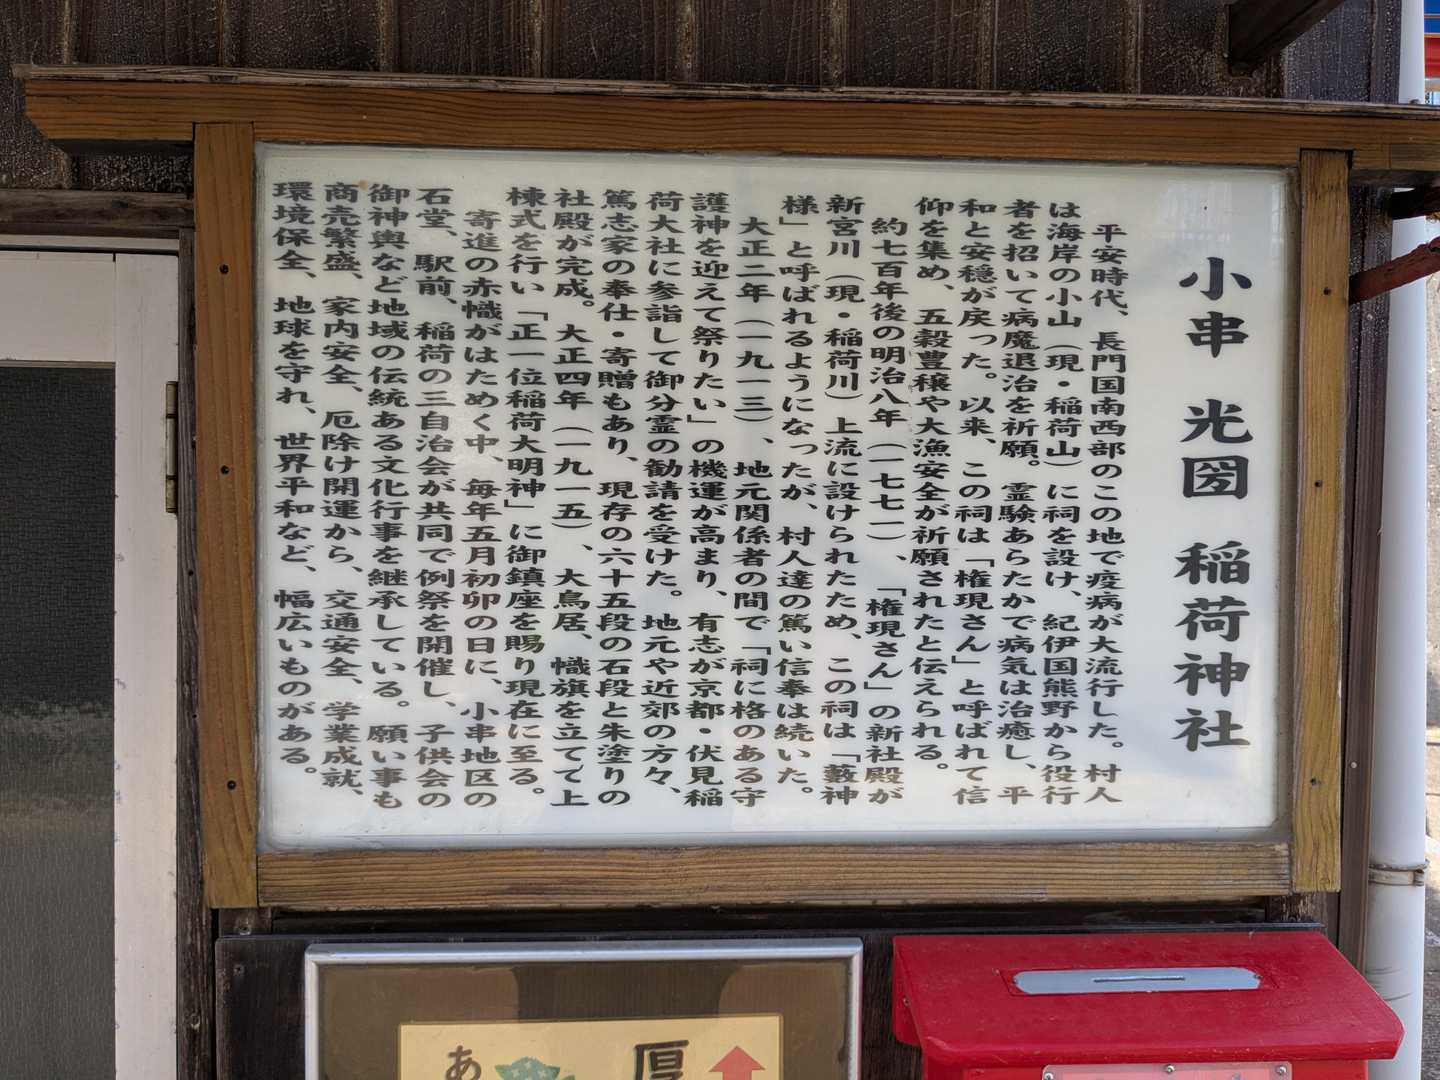 小串 光圀 稲荷神社
平安時代、長門国南西部のこの地で疫病が大流行した。村人
は海岸の小山（現・稲荷山）に祠を設け、紀伊国熊野から役行
者を招いて病魔退治を祈願。霊験あらたかで病気は治癒し、平
和と安穏が戻った。以来、この祠は「権現さん」と呼ばれて信
仰を集め、五穀豊穣や大漁安全が祈願されたと伝えられる。
約七百年後の明治八年（一七七一）、「権現さん」の新社殿が
新宮川（現・稲荷川）上流に設けられたため、この祠は「藪神
様」と呼ばれるようになったが、村人達の篤い信奉は続いた。
大正二年（一九一三）、地元関係者の間で「祠に格のある守
護神を迎えて祭りたい」の機運が高まり、有志が京都・伏見稲
荷大社に参詣して御分霊の勧請を受けた。地元や近郊の方々、
篤志家の奉仕・寄贈もあり、現存の六十五段の石段と朱塗りの
社殿が完成。大正四年（一九一五）、大鳥居、幟旗を立てて上
棟式を行い「正一位稲荷大明神」に御鎮座を賜り現在に至る。
寄進の赤幟がはためく中、毎年五月初卯の日に、小串地区の
石堂、駅前、稲荷の三自治会が共同で例祭を開催し、子供会の
御神輿など地域の伝統ある文化行事を継承している。願い事も
商売繁盛、家内安全、厄除け開運から、交通安全、学業成就、
環境保全、地球を守れ、世界平和など、幅広いものがある。
あ
厚